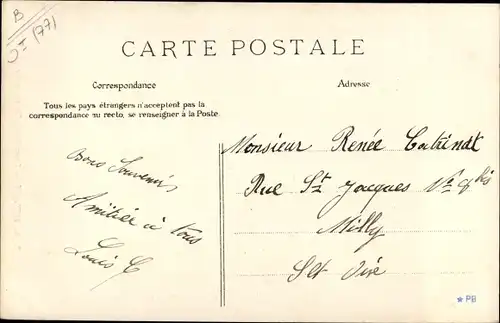 B
CARTE POSTALE
Correspondance
Adresse
Tous les pays étrangers n'acceptent pas la
correspondance au recto, se renseigner à la Poste
Bons Souvenirs
Amitiés à tous
Louis C
Monsieur Renée
Rue St Jacques Nº 9 bis
Milly
S et Oise
* PB